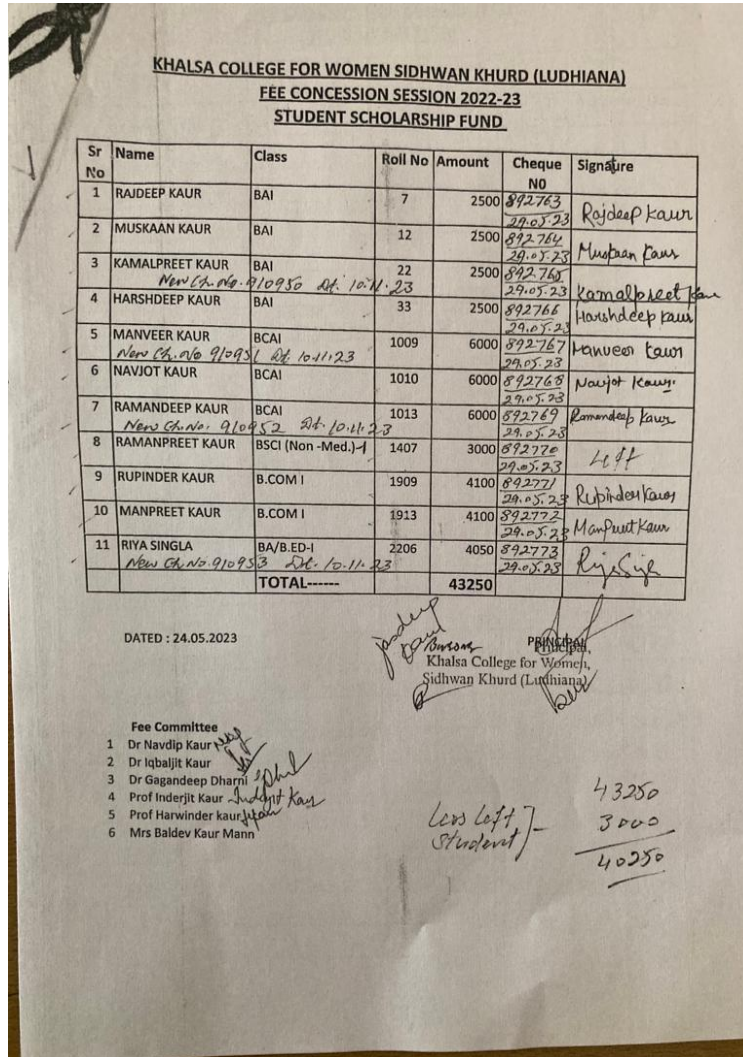 KHALSA COLLEGE FOR WOMEN SIDHWAN KHURD (LUDHIANA)
FEE CONCESSION SESSION 2022-23
STUDENT SCHOLARSHIP FUND
Sr No Name Class Roll No Amount Cheque N0 Signature
1 RAJDEEP KAUR BAI 7 2500 892763 29.05.23 Rajdeep Kaur
2 MUSKAAN KAUR BAI 12 2500 892764 29.05.23 Muskaan Kaur
3 KAMALPREET KAUR BAI 22 2500 892765 29.05.23 Kamalpreet Kaur
New Ch. No. 910950 Dt. 10.11.23
4 HARSHDEEP KAUR BAI 33 2500 892766 29.05.23 Harshdeep Kaur
5 MANVEER KAUR BCAI 1009 6000 892767 29.05.23 Manveer Kaur
New Ch. No 910951 Dt. 10.11.23
6 NAVJOT KAUR BCAI 1010 6000 892768 29.05.23 Navjot Kaur
7 RAMANDEEP KAUR BCAI 1013 6000 892769 29.05.23 Ramandeep Kaur
New Ch. No. 910952 Dt. 10.11.23
8 RAMANPREET KAUR BSCI (Non -Med.)-I 1407 3000 892770 29.05.23 Left
9 RUPINDER KAUR B.COM I 1909 4100 892771 29.05.23 Rupinder Kaur
10 MANPREET KAUR B.COM I 1913 4100 892772 29.05.23 Manpreet Kaur
11 RIYA SINGLA BA/B.ED-I 2206 4050 892773 29.05.23
New Ch. No. 910953 Dt. 10.11.23
TOTAL------ 43250
DATED : 24.05.2023
Jasdeep Kaur
Bursar PRINCIPAL
Principal,
Khalsa College for Women,
Sidhwan Khurd (Ludhiana)
Fee Committee
1 Dr Navdip Kaur
2 Dr Iqbaljit Kaur
3 Dr Gagandeep Dharni
4 Prof Inderjit Kaur Inderjit Kaur
5 Prof Harwinder kaur
6 Mrs Baldev Kaur Mann
43250
Less Left Student - 3000
40250